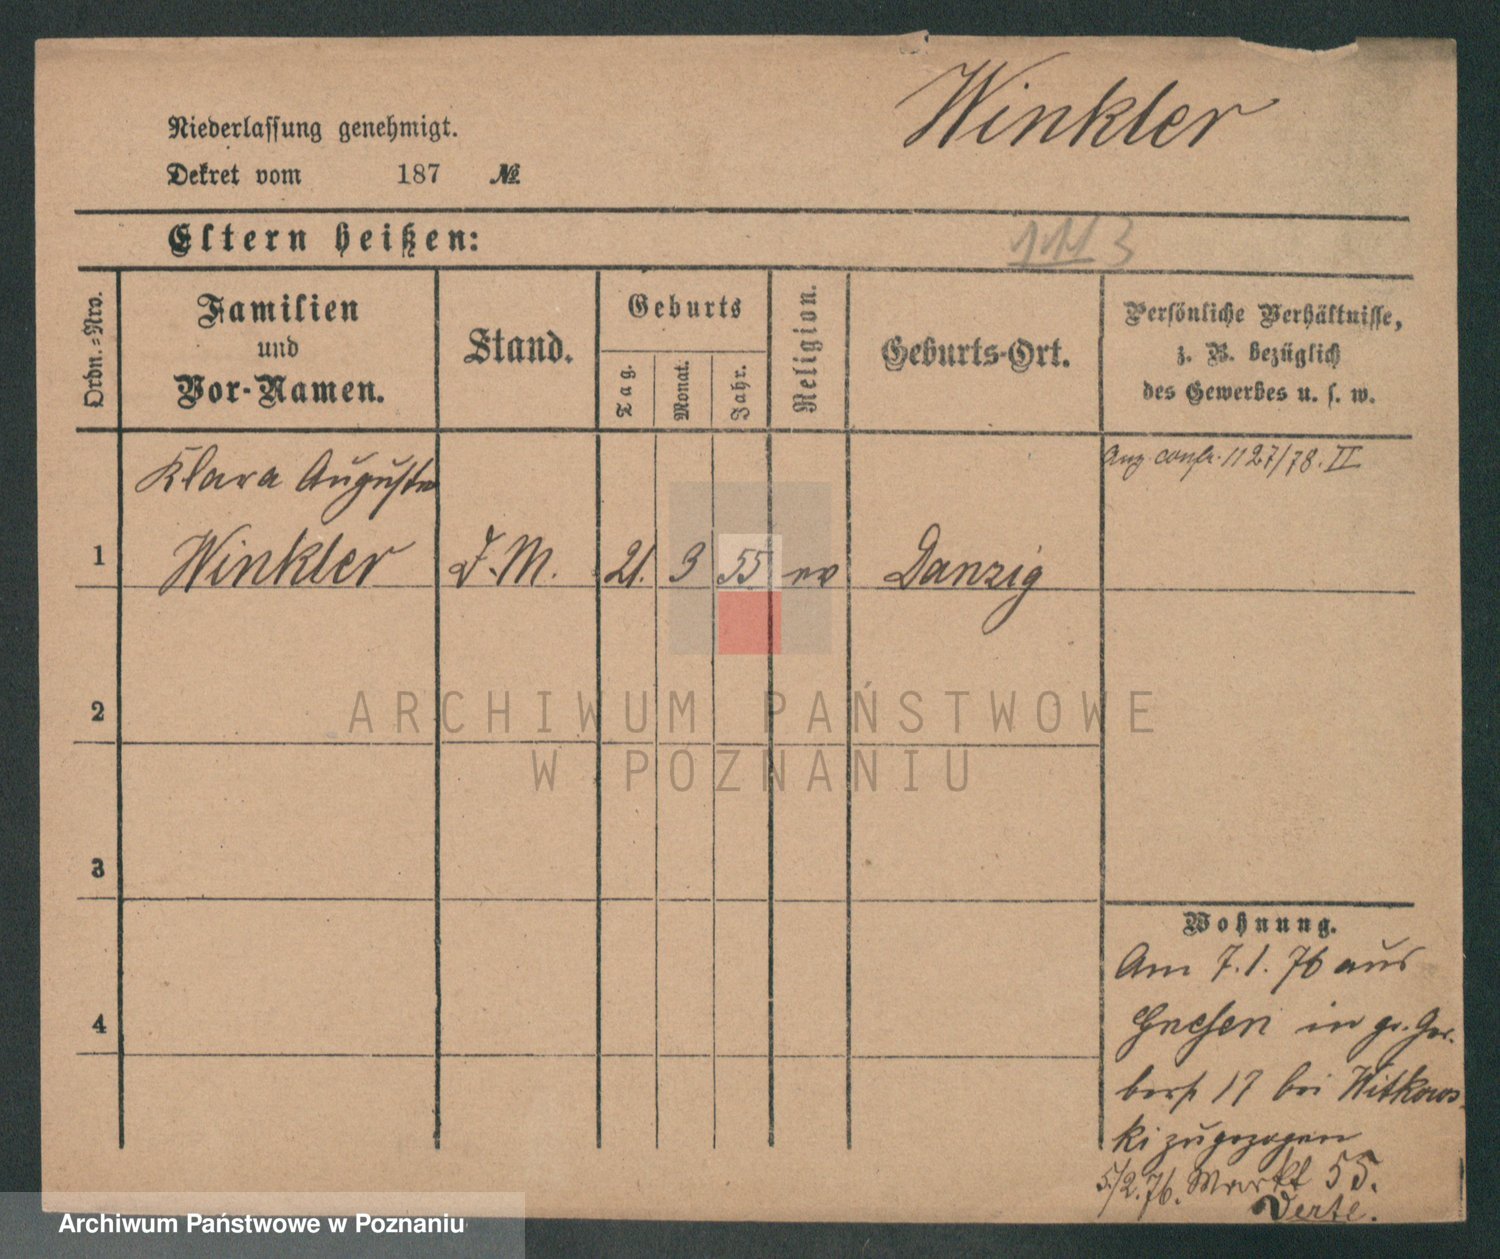 Winkler
Niederlassung genehmigt.
Dekret vom 187 №
Eltern heißen:
1113
Ordn.-Nro.
Familien
und
Vor-Namen.
Stand.
Geburts
Tag.
Monat.
Jahr.
Religion.
Geburts-Ort.
Persönliche Verhältnisse,
z. B. bezüglich
des Gewerbes u. s. w.
Klara Auguste
1127/78. II
1 Winkler D. M. 21. 3 55 ev Danzig
2
3
4
Wohnung.
Am 7.1.76 aus
Gnesen in gr. Ger-
berst 17 bei Witkows-
ki zugezogen
5/2.76. Markt 55.
ARCHIWUM PAŃSTWOWE
W POZNANIU
Archiwum Państwowe w Poznaniu